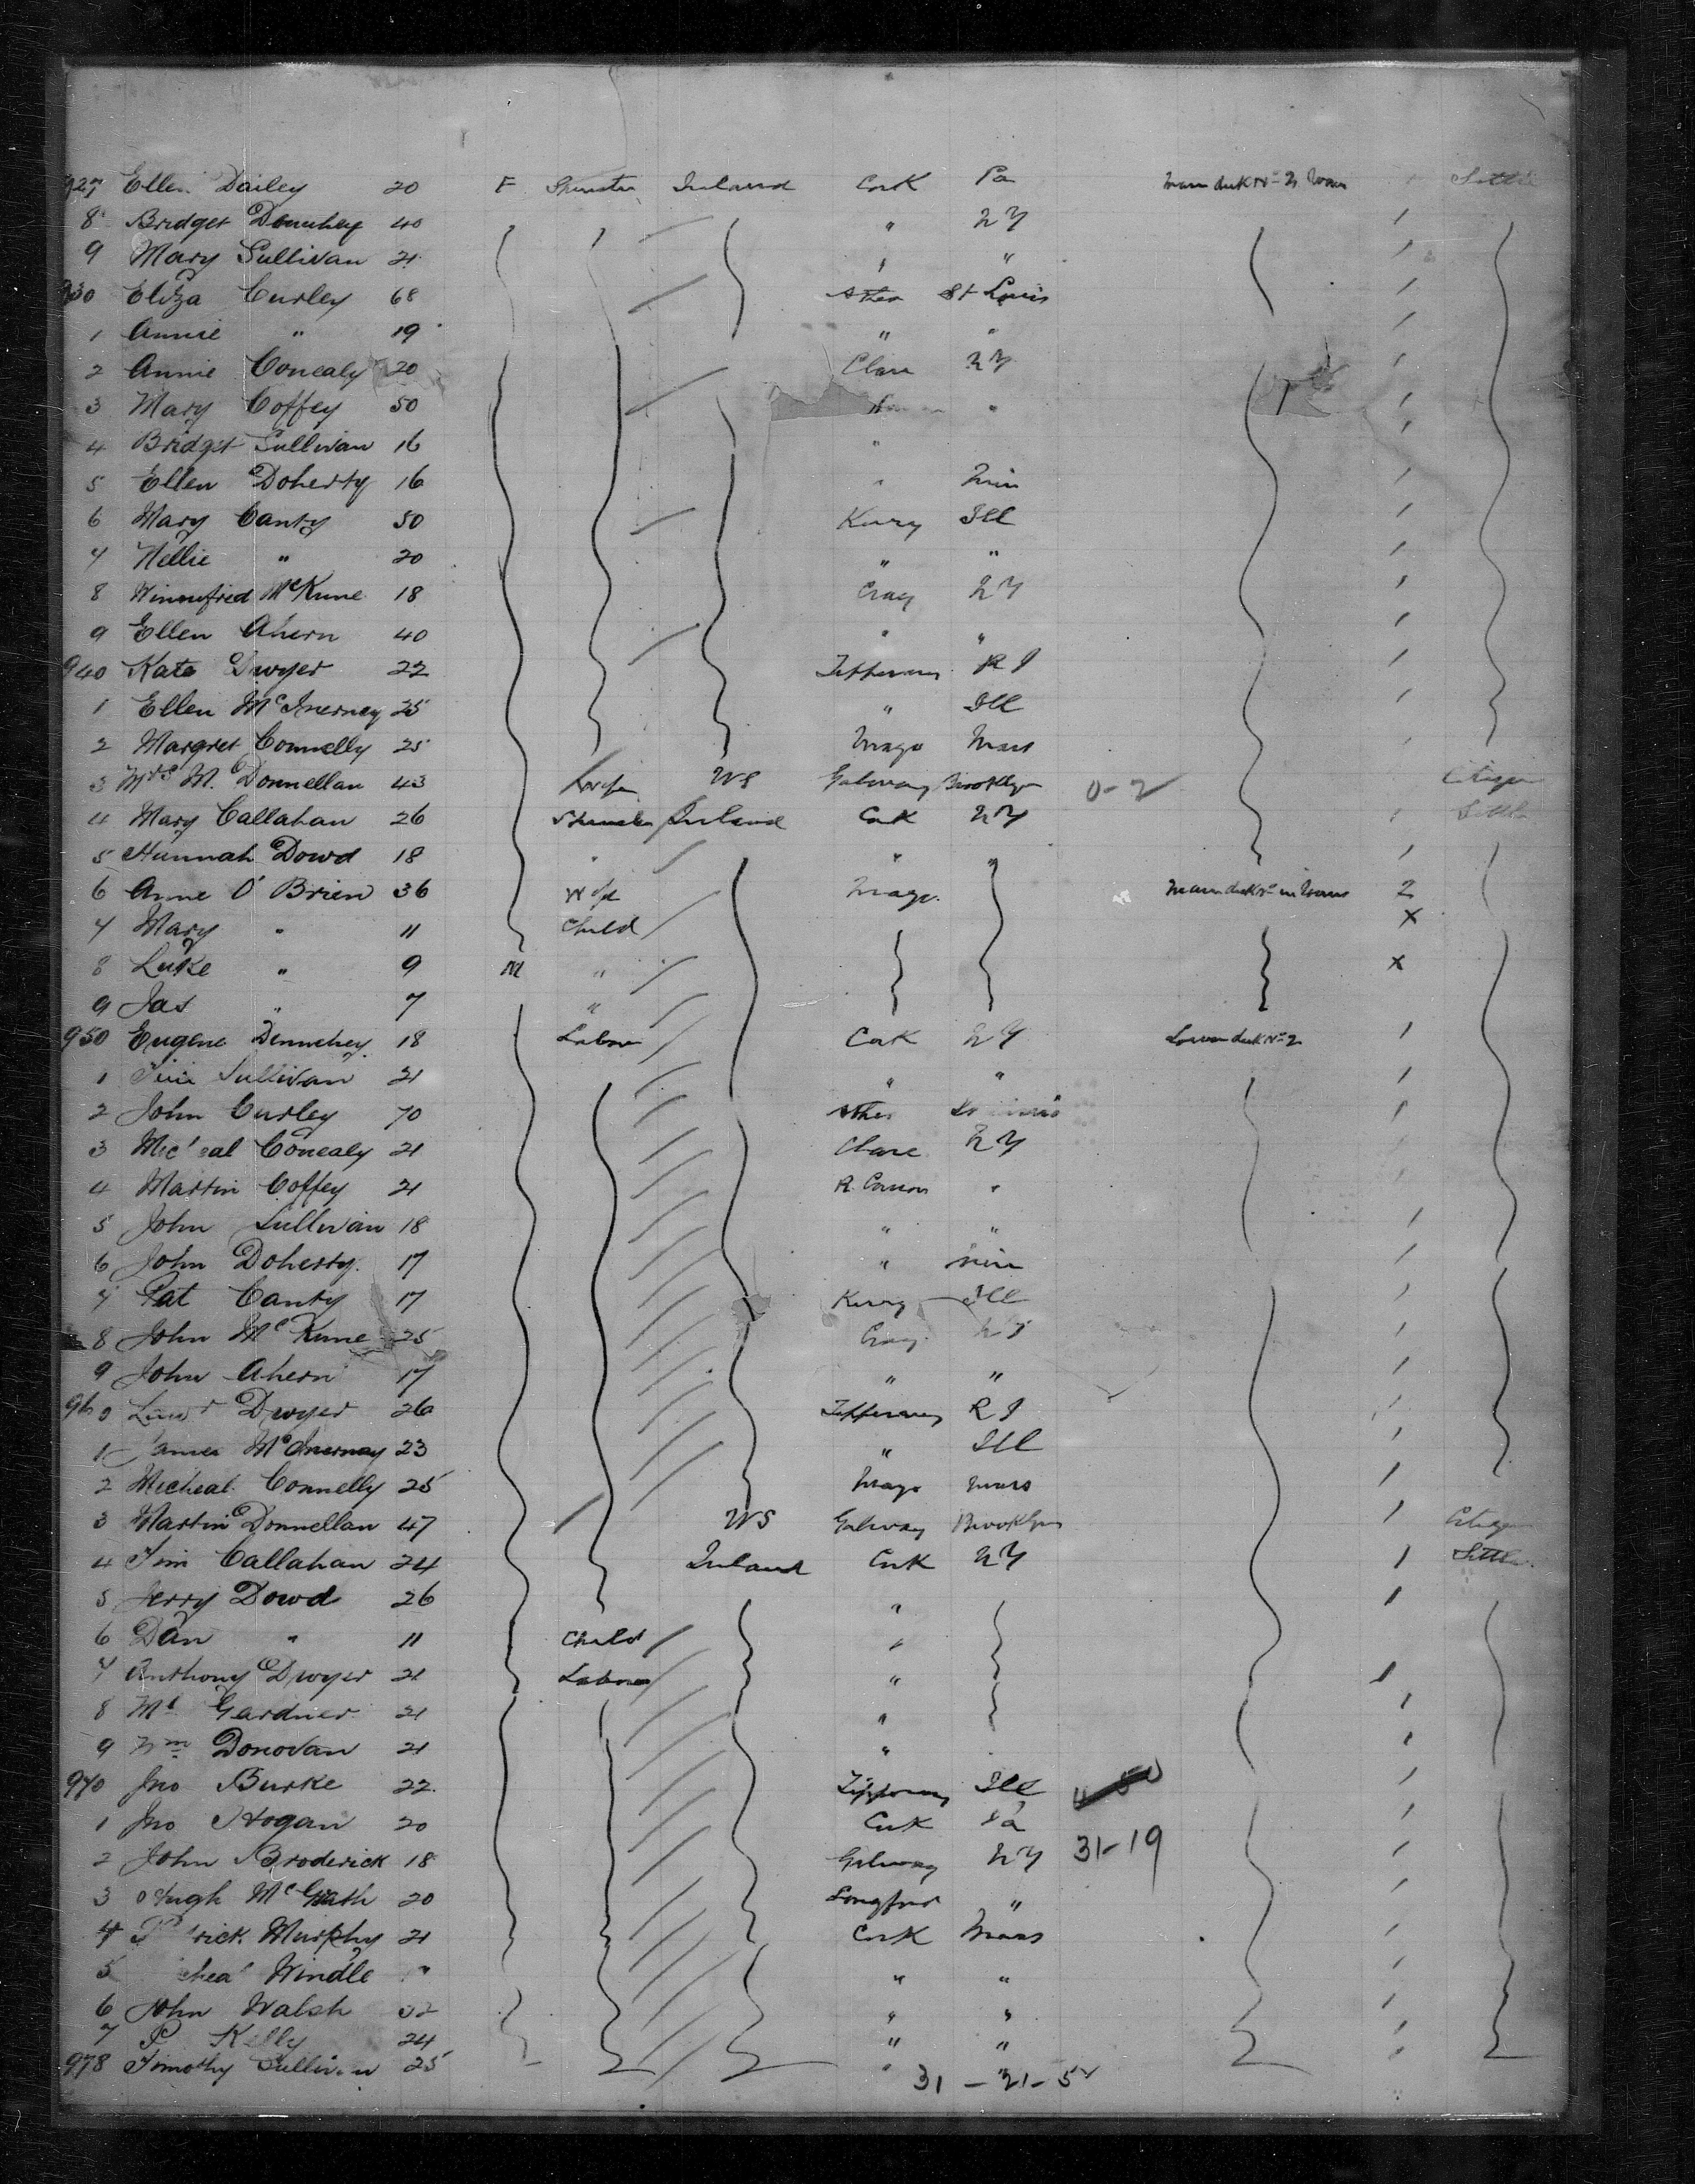 927 Ellen Dailey 20 F Spinster Ireland Cork Pa Settle
8 Bridget Dennehey 40 " NY
9 Mary Sullivan 21 " "
930 Eliza Curley 68 St Louis
1 Annie " 19 " "
2 Annie Conealy 20 Clare NY
3 Mary Coffey 50 "
4 Bridget Sullivan 16 "
5 Ellen Doherty 16 " Min
6 Mary Canty 50 Kerry Ill
7 Nellie " 20 " "
8 Winnufried McKune 18 NY
9 Ellen Ahern 40 " "
940 Kate Dwyer 22 Tipperary R I
1 Ellen McInerney 25 " Ill
2 Margret Connelly 25 Mayo Mass
3 Mrs M. Donnellan 43 Wife US Galway Brooklyn 0-2 Citizen
4 Mary Callahan 26 Spinster Ireland Cork NY Settle
5 Hannah Dowd 18 " " "
6 Anne O'Brien 36 Wife Mayo 2
7 Mary " 11 Child x
8 Luke " 9 M " x
9 Jas " 7 "
950 Eugene Dennehey 18 Labor Cork NY Lower deck No 2
1 Sullivan 21 " "
2 John Curley 70
3 Conealy 21 Clare NY
4 Martin Coffey 21 "
5 John Sullivan 18 " "
6 John Doherty 17 " Min
7 Pat Canty 17 Kerry Ill
8 John McKune 25 NY
9 John Ahern 17 " "
960 Dwyer 26 Tipperary R I
1 James McInernay 23 " Ill
2 Micheal Connelly 25 Mayo Mass
3 Martin Donnellan 47 US Galway Brooklyn Citizen
4 Tim Callahan 24 Ireland Cork NY Settle
5 Jerry Dowd 26 "
6 Dan " 11 Child "
7 Anthony Dwyer 21 Labor "
8 Gardner 21 "
9 Wm Donovan 21 "
970 Jno Burke 22 Tipperary Ill
1 Jno Hogan 20 Cork Pa
2 John Broderick 18 Galway NY 31-19
3 Hugh McGrath 20 Longford "
4 Murphy 21 Cork Mass
5 Windle " "
6 John Walsh 32 " "
7 P Kelly 24 " "
978 Timothy Sullivan 25 " "
31 - 21 - 52